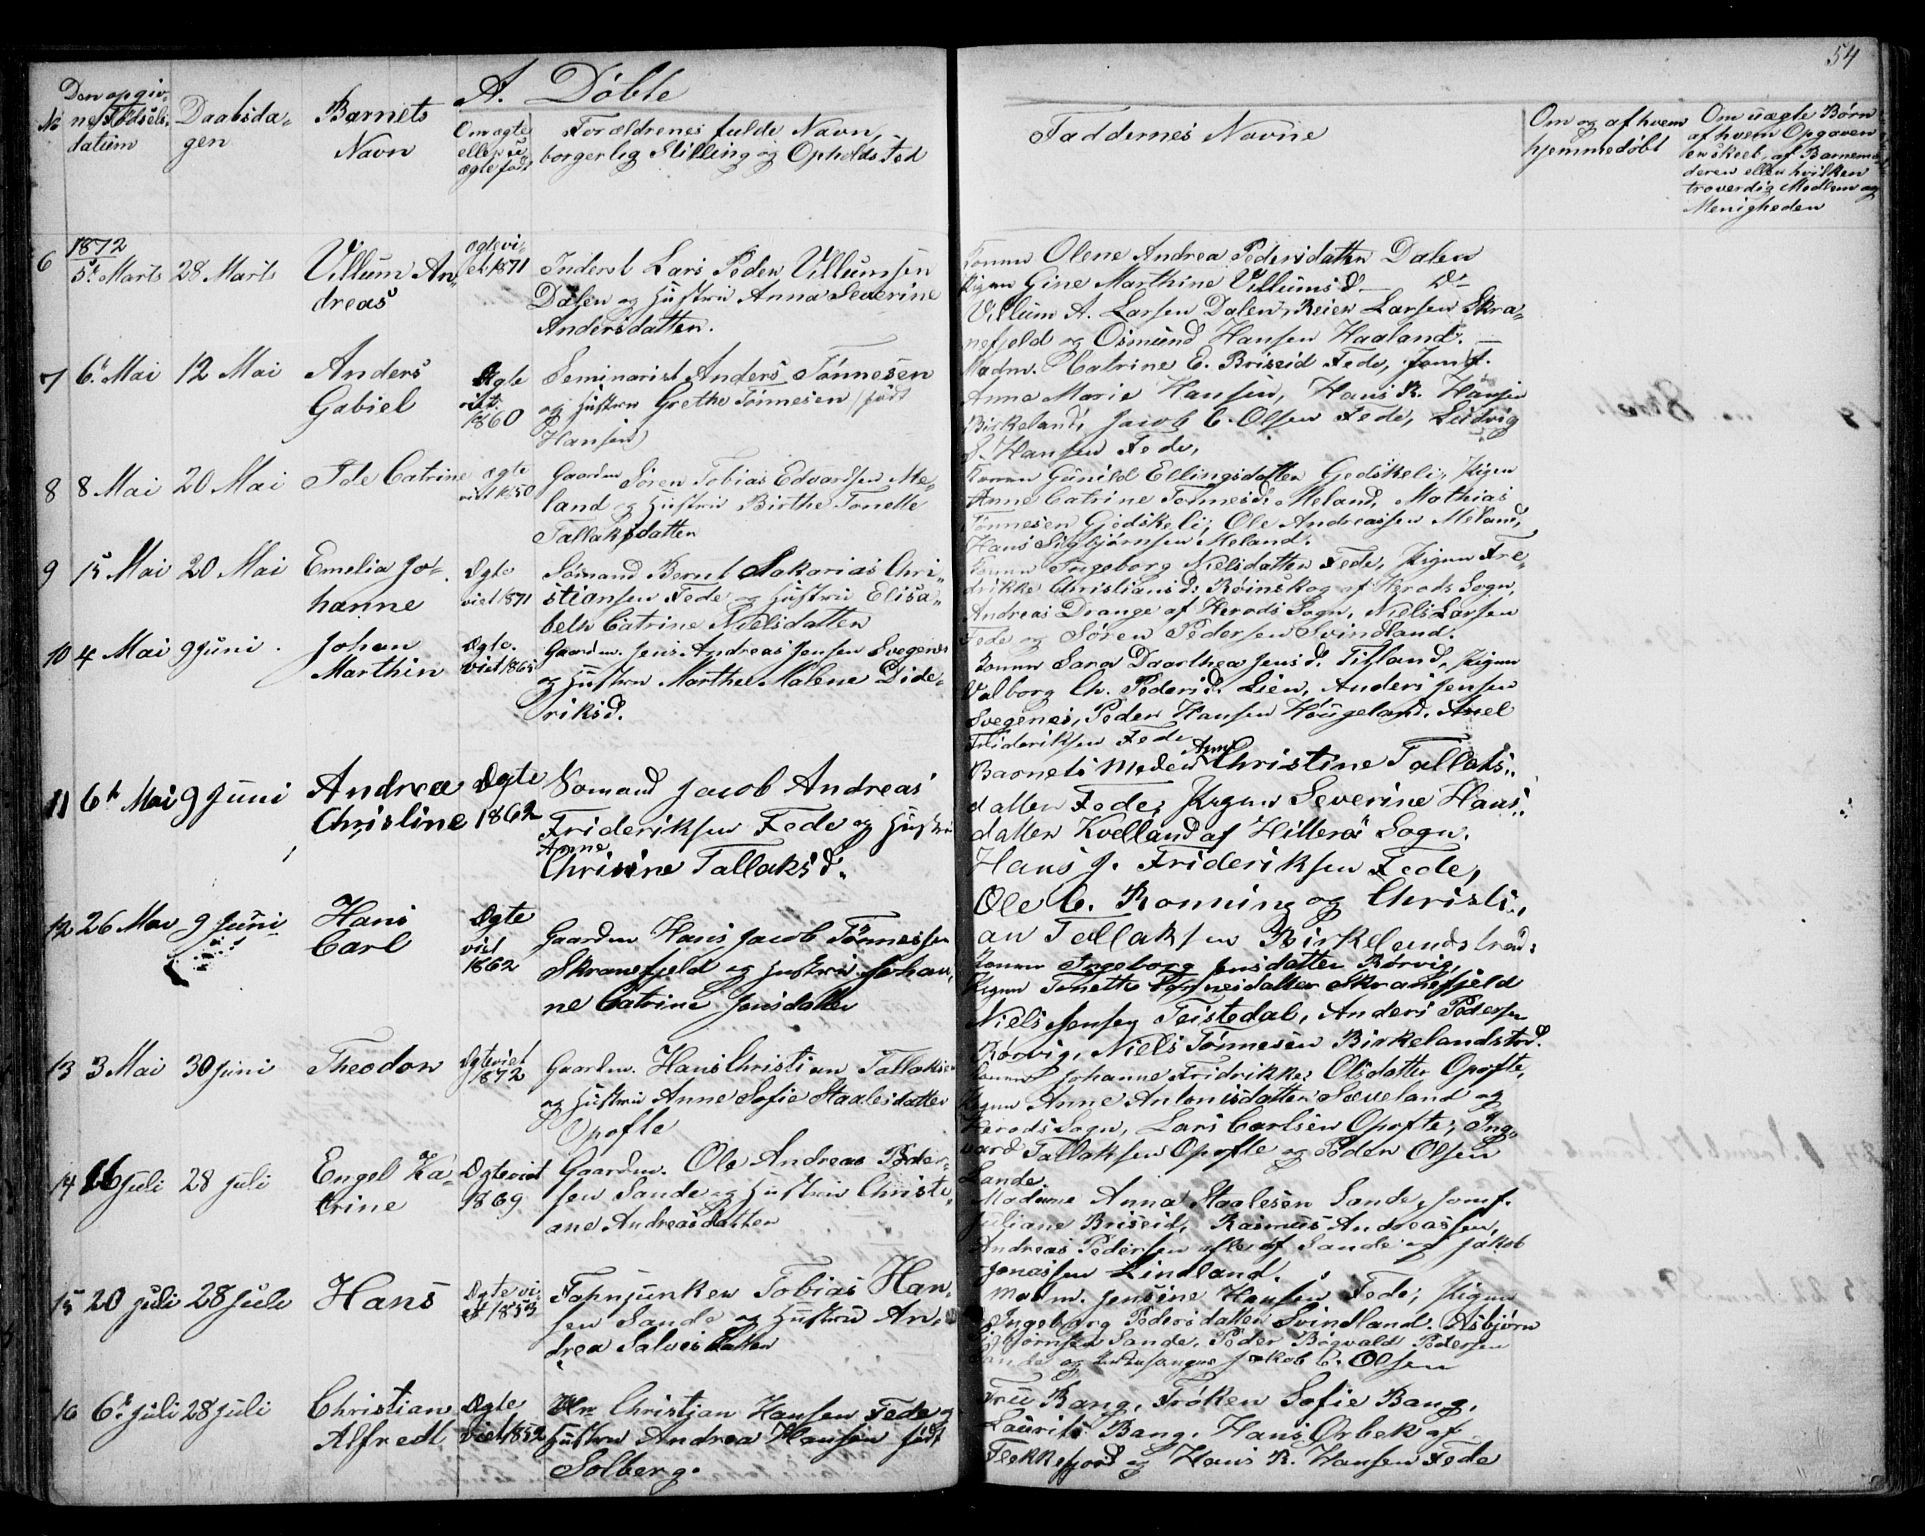 54
A. Døbte
No
Den opgiv-
ne Fødsels-
datum
Daabsda-
gen
Barnets
Navn
Om ægte
eller u-
ægte født
Forældrenes fulde Navn,
borgerlig Stilling og Opholdssted
Faddernes Navne
Om og af hvem
hjemmedøbt
Om uægte Børn
af hvem Opgaven
er skeet, af Barnemo-
deren eller hvilken
troverdig Medlem og
Menigheden
1872
6 5te Marts 28 Marts Villum An-
dreas
ægte vi-
et 1871
Inderst Lars Peder Villumsen
Dalen og Hustru Anna Severine
Andersdatter.
Konen Olene Andrea Pedersdatter Dalen
Pigen Gine Marthine Villumsd. — Do
Villum A. Larsen Dalen, Reier Larsen Skra-
nefjeld og Osmund Hansen Haaland.
7 6te Mai 12 Mai Anders
Gabiel
Ægte
viet
1860
Seminarist Anders Tønnesen
og Hustru Grethe Tønnesen (født
Hansen)
Madm. Catrine E. Briseid Fede, Jomf.
Anna Marie Hansen, Hans R. Hansen
Birkeland, Jacob C. Olsen Fede, Ludvig
S. Hansen Fede,
8 8 Mai 20 Mai Ide Catrine
ægte
viet 1850
Gaardm Søren Tobias Edvardsen Me-
land og Hustru Birthe Tonette
Tallaksdatter
Konen Gunild Ellingsdatter Gjedskeli, Pigen
Anne Catrine Tønnesd. Meland, Mathias
Tønnesen Gjedskeli, Ole Andreassen Meland,
Hans Sigbjørnsen Meland.
9 15 Mai 20 Mai Emelia Jo-
hanne
Ægte
viet 1871
Sømand Bernt Sakarias Chri-
stiansen Fede og Hustru Elisa-
beth Catrine Nielsdatter
Konen Ingeborg Nielsdatter Fede, Pigen Fre-
drikke Christiansd. Røinskog af Herads Sogn,
Andreas Drange af Herads Sogn, Niels Larsen
Fede og Søren Pedersen Svindland.
10 4 Mai 9 Juni Johan
Marthin
Ægte.
viet 1865
Gaardm. Jens Andreas Jensen Svegenes
og Hustru Marthe Malene Dide-
riksd.
Konen Sara Daarthea Jensd. Titland, Pigen
Valborg Ch. Pedersd. Lien, Anders Jensen
Svegenes, Peder Hansen Høugeland. Axel
Frideriksen Fede
11 6te Mai 9 Juni Andrea
Christine
Ægte
1862
Sømand Jacob Andreas
Frideriksen Fede og Hustru
Anne
Christine Tallaksd.
Barnets Moder Anne Christine Tallaks-
datter Fede, Pigen Severine Hans-
datter Kvelland af Hitterø Sogn.
Hans J. Frideriksen Fede,
Ole C. Ronning og Christi-
an Tallaksen Birkelundstrand:
12 26 Mai 9 Juni Hans
Carl
Ægte
viet
1862
Gaardm Hans Jacob Tønnessen
Skranefjeld og Hustru Johan-
ne Catrine Jensdatter
Konen Ingeborg Jensdatter Rørvig,
Pigen Tonette Tønnesdatter Skranefjeld
Niels Jensen Teistedal, Anders Pedersen
Rørvig, Niels Tønnesen Birkelandstrd.
13 3 Mai 30 Juni Theodor
Ægte viet
1872
Gaardm. Hans Christian Tallaksen
og Hustru Anne Sofie Staalesdatter
Opofte
Konen Johanne Fridrikke Olsdatter Opofte,
Pigen Anne Antonisdatter Sæveland og
Herads Sogn, Lars Carlsen Opofte, Ing-
vard Tallaksen Opofte og Peder Olsen
Sande.
14 16 Juli 28 Juli Engel Ka-
trine
Ægte viet
1869
Gaardm. Ole Andreas Peder-
sen Sande og Hustru Christi-
ane Andreasdatter
Madame Anna Staalesen Sande, Jomf.
Juliane Briseid, Rasmus Andreassen,
Andreas Pedersen alle af Sande og Jakob
Jonassen Lindland.
15 20 Juli 28 Juli Hans
Ægte vi-
et 1853
Fahnjunker Tobias Han-
sen Sande og Hustru An-
drea Salvesdatter
Madm. Jensine Hansen Fede, Pigen
Ingeborg Pedersdatter Svindland. Asbjørn
Sigbjørnsen Sande, Peder Bøgvald Pedersen
Sande og Kirkesanger Jakob C. Olsen
16 6te Juli 28 Juli Christian
Alfredt
Ægte
viet 1852
Hr Christjan Hansen Fede og
Hustru Andrea Hansen født
Solberg.
Fru Bang, Frøken Sofie Bang,
Laurits Bang, Hans Ørbek af
Flekkefjord og Hans R. Hansen Fede